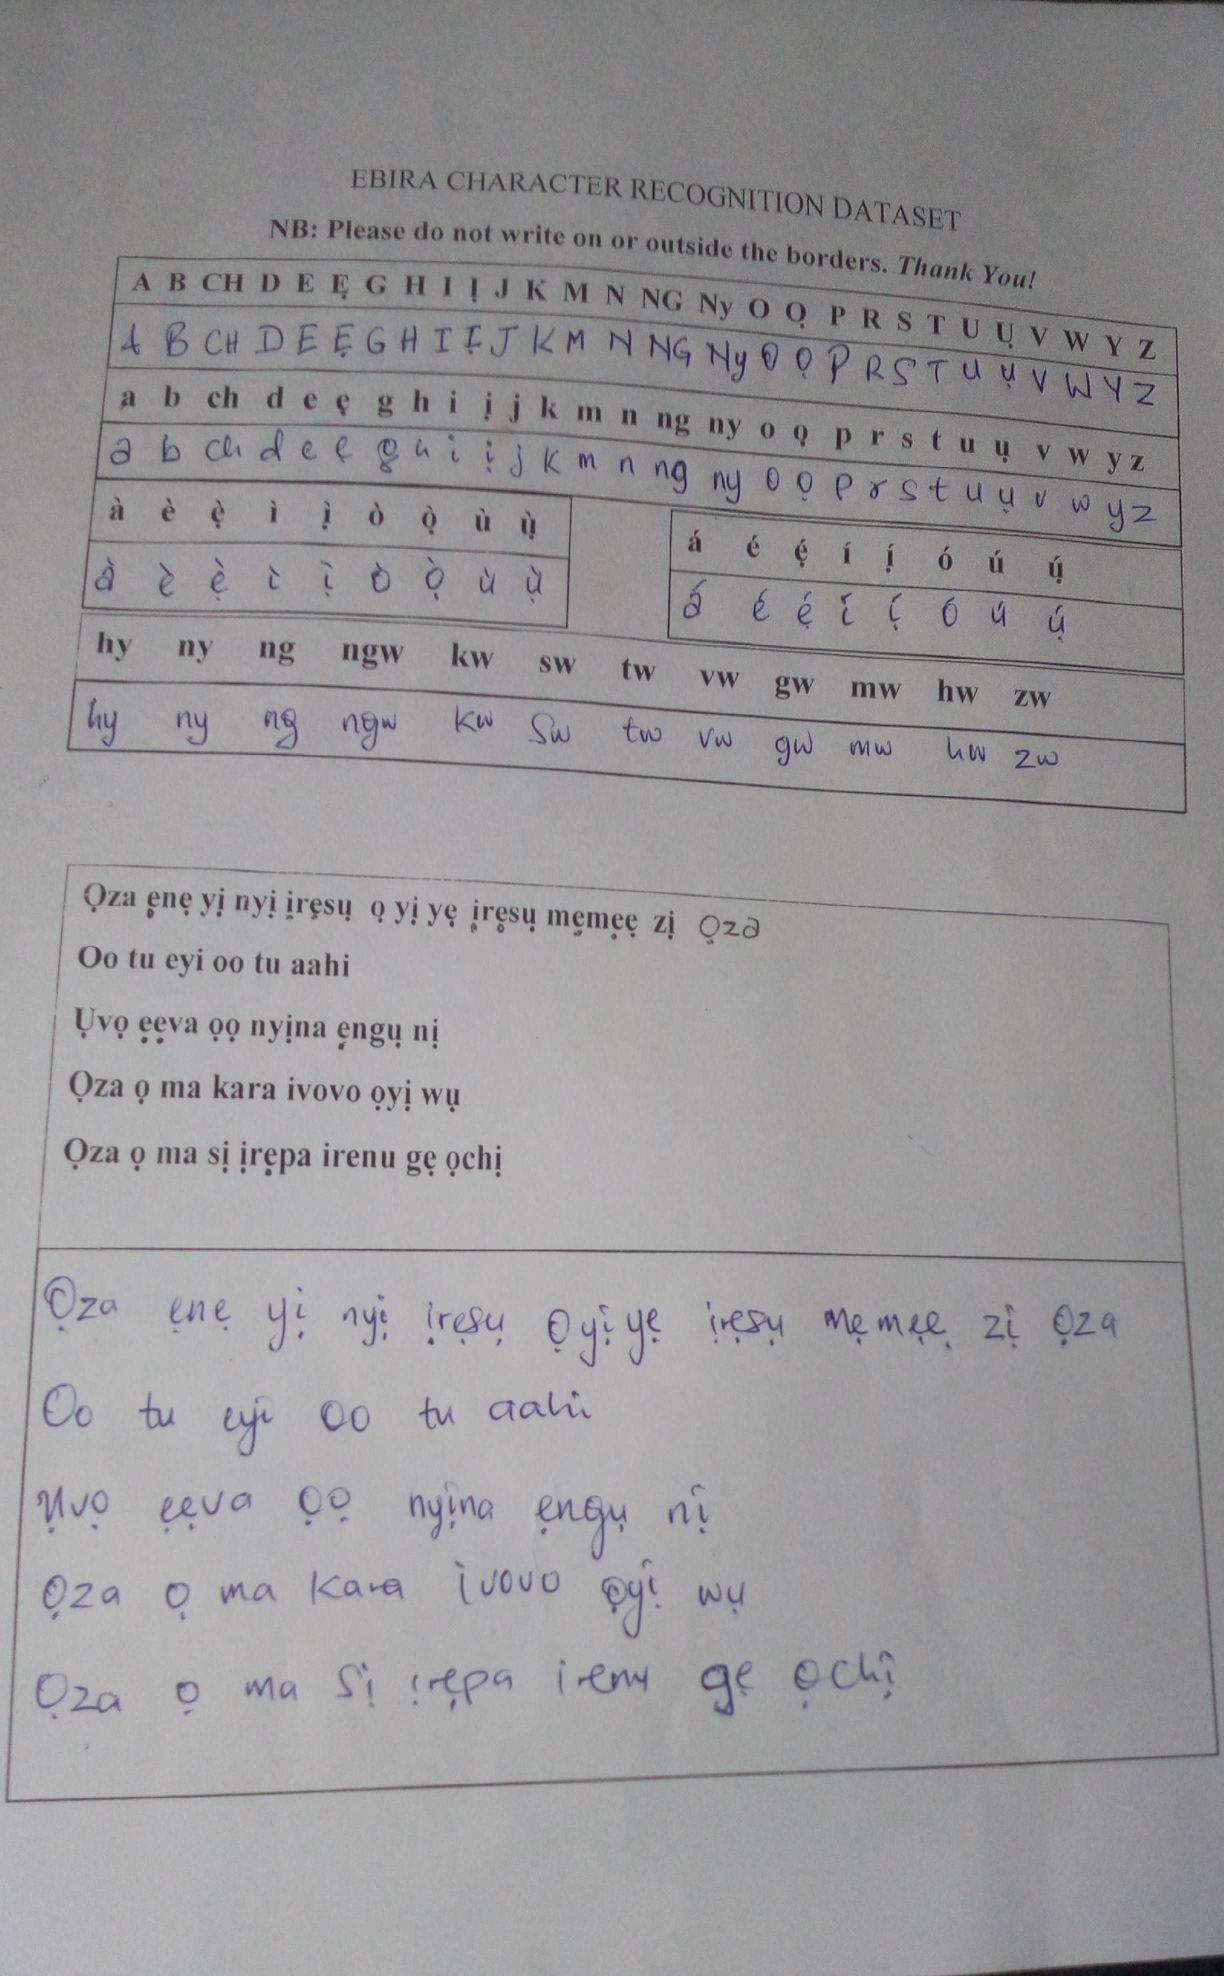 EBIRA CHARACTER RECOGNITION DATASET
NB: Please do not write on or outside the borders. Thank You!
A B CH D E Ẹ G H I Ị J K M N NG Ny O Ọ P R S T U Ụ V W Y Z
A B CH D E Ẹ G H I Ị J K M N NG Ny O Ọ P R S T U Ụ V W Y Z
a b ch d e ẹ g h i ị j k m n ng ny o ọ p r s t u ụ v w y z
a b ch d e ẹ g h i ị j k m n ng ny o ọ p r s t u ụ v w y z
à è ẹ̀ ì ị̀ ò ọ̀ ù ụ̀
à è ẹ̀ ì ị̀ ò ọ̀ ù ụ̀
á é ẹ́ í ị́ ó ú ụ́
á é ẹ́ í ị́ ó ú ụ́
hy ny ng ngw kw sw tw vw gw mw hw zw
hy ny ng ngw kw sw tw vw gw mw hw zw
Ọza ẹnẹ yị nyị ịrẹsụ ọ yị yẹ ịrẹsụ mẹmẹẹ zị Ọza
Oo tu eyi oo tu aahi
Ụvọ ẹẹva ọọ nyịna ẹngụ nị
Ọza ọ ma kara ivovo ọyị wụ
Ọza ọ ma sị ịrẹpa irenu gẹ ọchị
Ọza ẹnẹ yị nyị ịrẹsụ Ọ yị yẹ ịrẹsụ mẹmẹẹ zị ọza
Oo tu eyi oo tu aahi
Ụvọ ẹẹva ọọ nyịna ẹngụ nị
Ọza ọ ma kara ivovo ọyị wụ
Ọza ọ ma sị ịrẹpa irenu gẹ ọchị